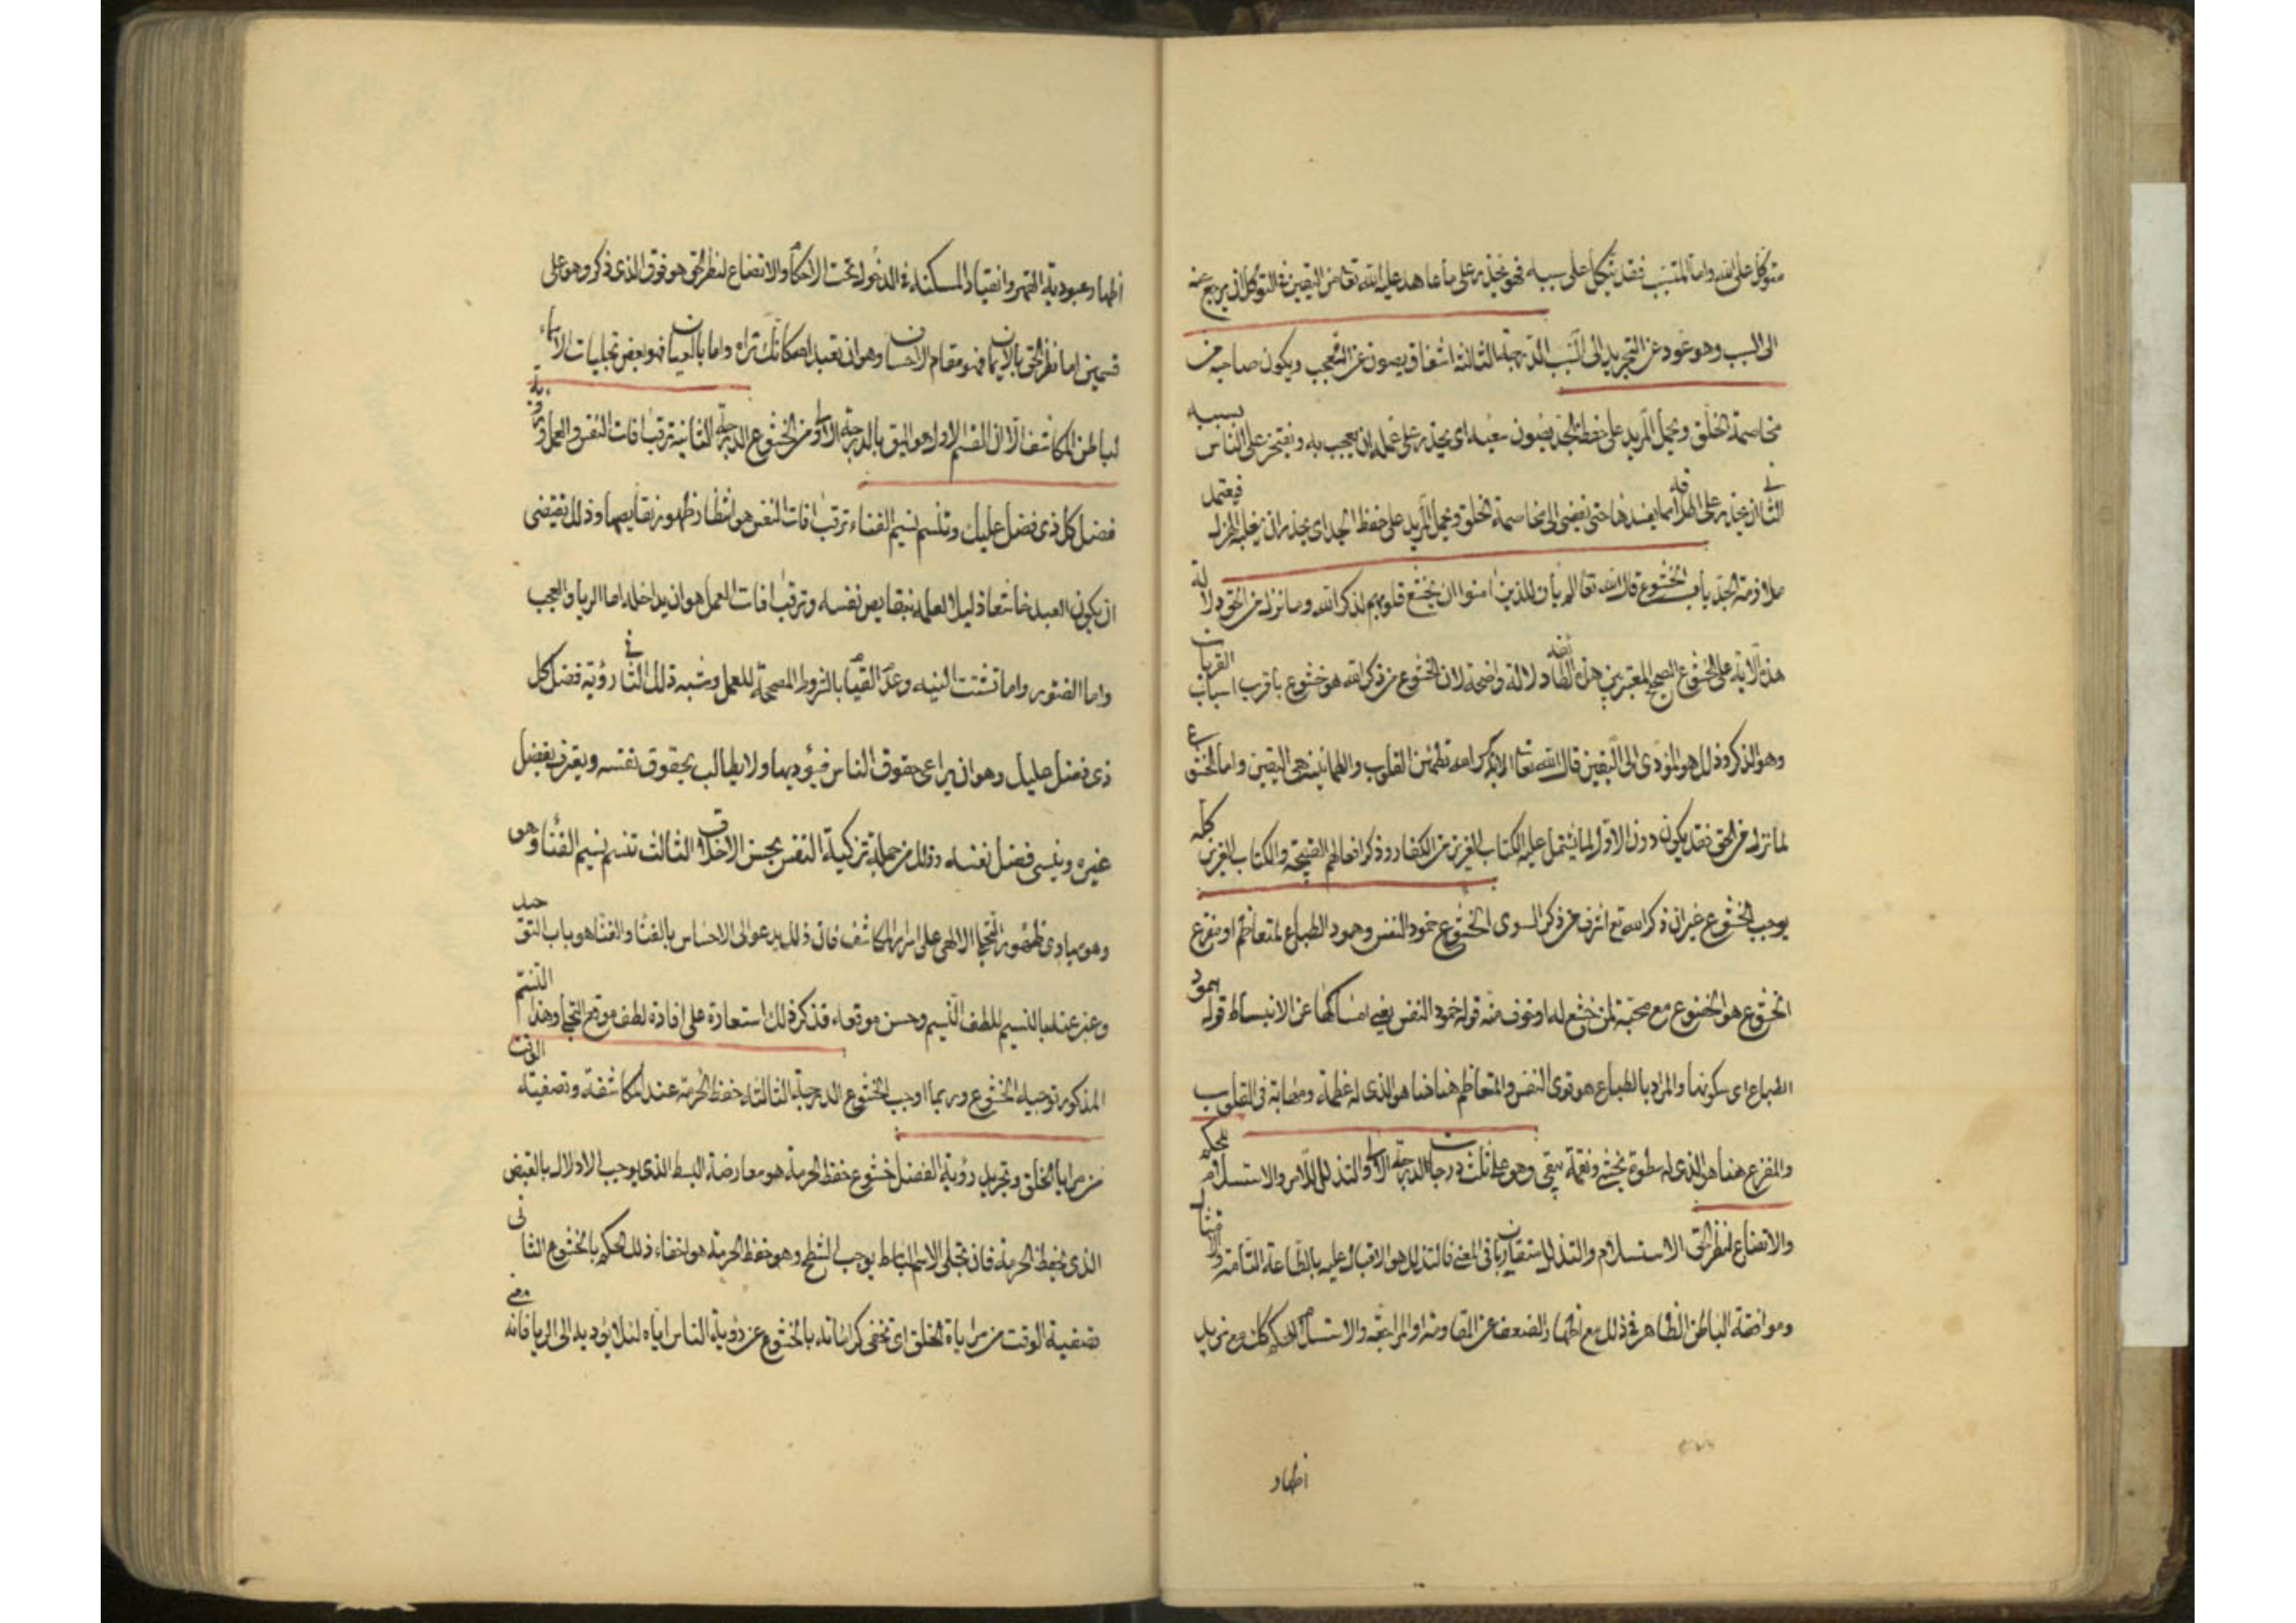 متوكل على الله واما المتسبب فقد يتكل على سببه فهو يحذر على ما عاهد عليه الله تعالى من اليقين في التوكل ان يرجع عنه
الى السبب وهو عود عن التجريد الى السبب الدرجة الثالثة اشفاق يصون سعيه عن العجب ويكون صاحبه من
مخاصمة الخلق ويحمل المريد على حفظ الجد يصون سعيه اى يحذر على عمله ان يعجب به ويفتخر على الناس بسببه
الثانى يحذر على اخلاقه مما يفسدها حتى تفضى الى مخاصمة الخلق ويحمل المريد على حفظ الجد اى يحذر ان يغلبه الهزل فيعتمد
ملازمة الجد باب الخشوع قال الله تعالى الم يأن للذين امنوا ان تخشع قلوبهم لذكر الله وما نزل من الحق دلالة
هذه الاية على الخشوع الصحيح المعتبر بين هذه الطائفه دلالة واضحة لان الخشوع من ذكر الله هو خشوع باقرب اسباب القربات
وهو الذكر وذلك هو المؤدى الى اليقين قال الله تعالى الا بذكر الله تطمئن القلوب والطمانينة هى اليقين واما الخشوع
لما نزل من الحق فقد يكون دون الاول لما يشتمل عليه الكتاب العزيز من الكفار وذكر افعالهم القبيحة والكتاب العزيز كله
يوجب الخشوع غير ان ذكر الله تع اشرف من ذكر السوى الخشوع خمود النفس وهمود الطباع لمتعاظم او مفزع
الخشوع هو الخضوع مع محبة لمن خشع له او خوف منه قوله خمود النفس يعنى امساكها عن الانبساط قوله همود
الطباع اى سكونها والمراد بالطباع هو قوى النفس والمتعاظم هنا هو الذى له عظمة ومهابة فى القلوب
والمفزع هنا هو الذى له سطوة تخشى ونقمة تتقى وهو على ثلث درجات الدرجة الاولى التذلل للامر والاستسلام للحكم
والاتضاع لنظر الحق الاستسلام والتذلل متقاربان فى المعنى فالتذلل هو الاقبال عليه بالطاعة التامة والامتثال
وموافقة الباطن الظاهر فى ذلك مع اظهار الضعف عن المقاومة او المراجعة والاستسلام للحكم كذلك مع مزيد
اظهار
اظهار عبودية القهر وانقياد المسكنة فى الدخول تحت الاحكام والاتضاع لنظر الحق هو فوق الذى ذكر وهو على
قسمين اما نظر الحق بالايمان فهو مقام الاحسان وهو ان تعبد الله كانك تراه واما بالعيان فهو بعض تجليات الاسماء
لباطن المكاشف الا ان القسم الاول هو اليق بالدرجة الاولى من الخشوع الدرجة الثانية ترقب افات النفس والعمل ورؤية
فضل كل ذى فضل عليك وتنسم نسيم الفناء ترقب افات النفس هو انتظار ظهور نقايصها وذلك يقتضى
ان يكون العبد خاشعا ذليلا لعلمه بنقايص نفسه وترقب افات العمل هو ان يداخله اما الرياء والعجب
واما الفتور واما تشتت النية وعدم القيام بالشروط المصححة للعمل وشبه ذلك الثانى رؤية فضل كل
ذى فضل عليك وهو ان يراعى حقوق الناس فيؤديها ولا يطالب بحقوق نفسه ويعترف بفضل
غيره وينسى فضل نفسه وذلك من جملة تزكية النفس بحسن الاخلاق الثالث تنسم نسيم الفناء وهو
وهو مبادى ظهور التجلى الالهى على اسرار المكاشف فان ذلك يدعو الى الاحساس بالفنا والفنا هو باب التوحيد
وعبر عنه بالنسيم للطف النسيم وحسن موقعه فذكر ذلك استعارة على افادة لطف موقع التجلى وهذا التنسم
المذكور توصية الخشوع وربما اوجب الخشوع الدرجة الثالثة حفظ الحرمة عند المكاشفة وتصفية الوقت
من مراياة الخلق وتجريد رؤية الفضل خشوع حفظ الحرمة هو معارضة البسط الذى يوجب الادلال بالقبض
الذى يحفظ الحرمة فان تجلى الاسم الباسط يوجب الشطح وهو حفظ الحرمة هو اخفاء ذلك الحكم بالخشوع الثانى
تصفية الوقت من مراياة الخلق اى تخفى كراماته بالخشوع عن رؤية الناس اياه لئلا يؤديه الى الريا فانه